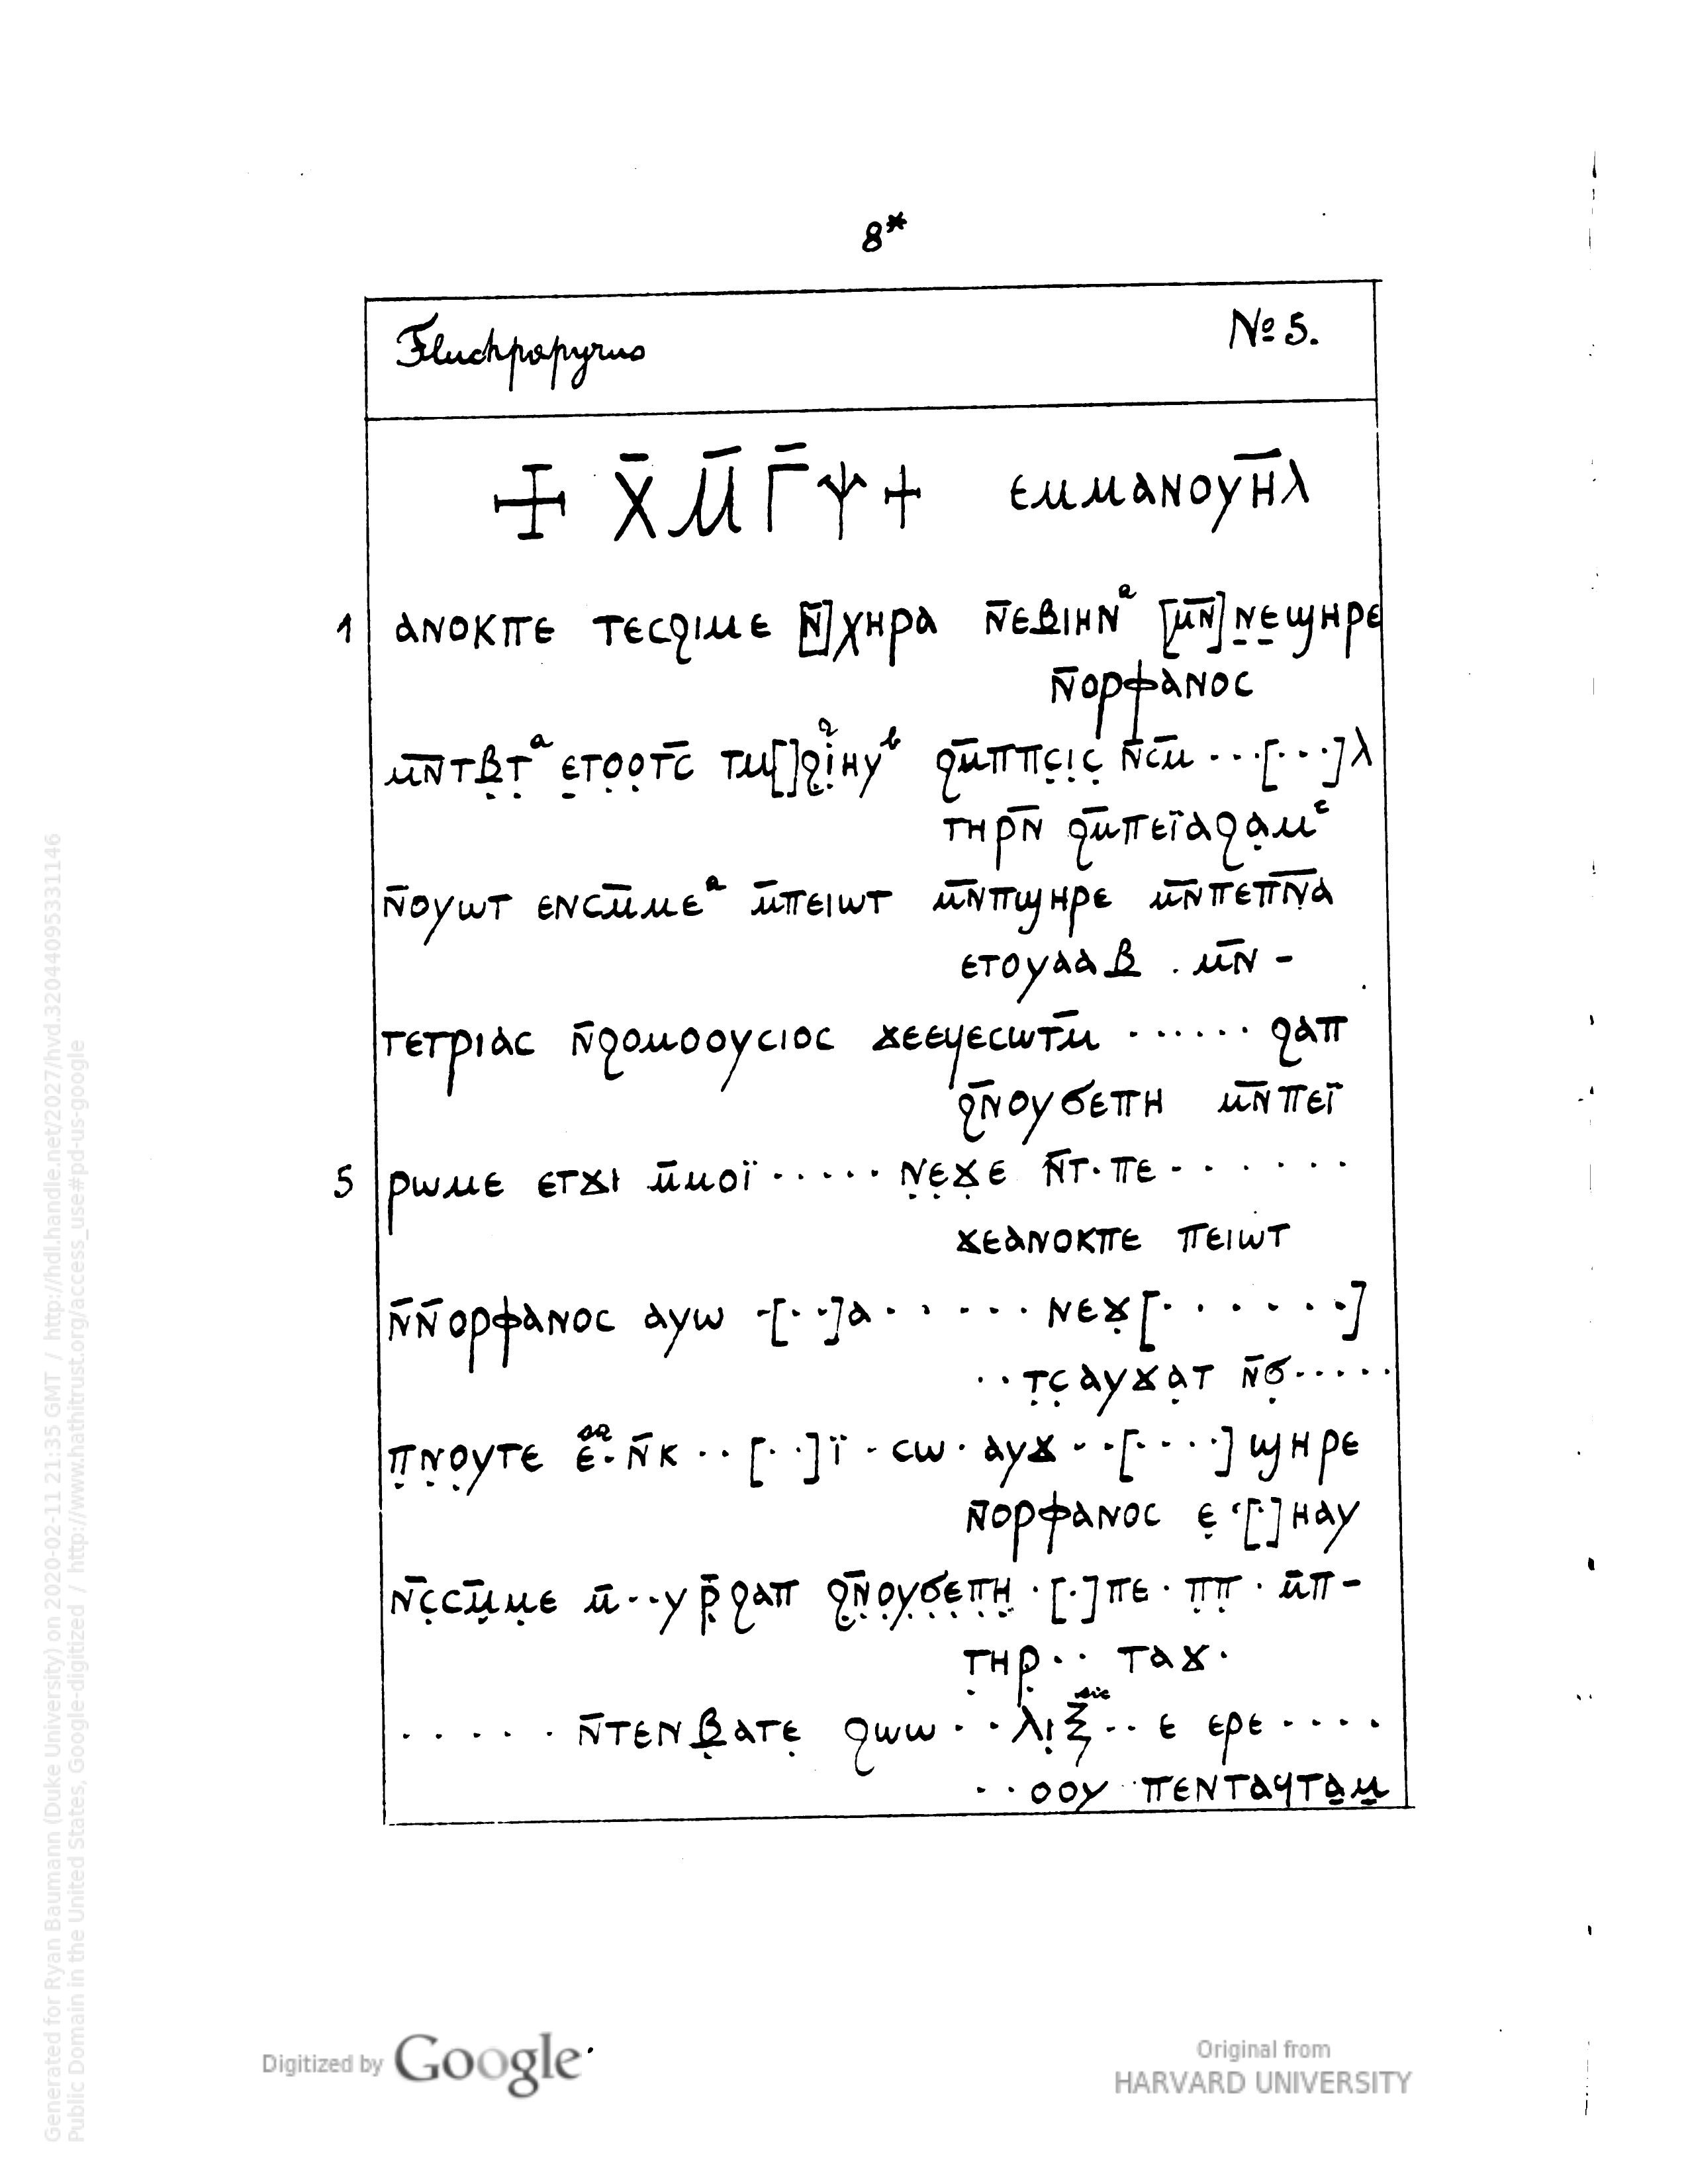 8*
Fluchpapyrus
No 5.
☩ Χ̄ Μ̄ Γ̄ ⳨ + ⲉⲙⲙⲁⲛⲟⲩⲏ̄ⲗ
1 ⲁⲛⲟⲕⲡⲉ ⲧⲉⲥϩⲓⲙⲉ [ⲛ̄]ⲭⲏⲣⲁ ⲛ̄ⲉⲃⲓⲏⲛᵃ [ⲙ̄ⲛ̄]ⲛ̣ⲉ̣ϣⲏⲣⲉ
ⲛ̄ⲟⲣⲫⲁⲛⲟⲥ
ⲙ̄ⲛ̄ⲧⲃ̣ⲧ̣ᵃ ⲉ̣ⲧⲟ̣ⲟ̣ⲧⲥ̄ ϩⲙ̄ⲡⲡⲥ̣ⲓ̣ⲥ̣ ⲛ̄ⲥⲙ̄ ···[···]ⲗ
ⲧⲏⲣⲛ̄ ϩⲙ̄ⲡⲉⲓ̈ⲁϩⲁ̣ⲙᶜ
ⲛ̄ⲟⲩⲱⲧ ⲉⲛⲥⲙ̄ⲙⲉᵃ ⲙ̄ⲡⲉⲓⲱⲧ ⲙ̄ⲛ̄ⲡϣⲏⲣⲉ ⲙ̄ⲛ̄ⲡⲉⲡ̄ⲛ̣̄ⲁ̄
ⲉⲧⲟⲩⲁⲁⲃ . ⲙ̄ⲛ̄ -
ⲧⲉⲧⲣⲓⲁⲥ ⲛ̄ϩⲟⲙⲟⲟⲩⲥⲓⲟⲥ ϫⲉⲉϥⲉⲥⲱⲧⲙ̄ ······ ϩⲁⲡ
ϩⲛ̄ⲟⲩϭⲉⲡⲏ ⲙ̄ⲛ̄ⲡⲉⲓ̈
5 ⲣⲱⲙⲉ ⲉⲧϫⲓ ⲙ̄ⲙⲟⲓ̈ ····· ⲛ̣ⲉ̣ϫ̣ⲉ ⲛ̄ⲧ·ⲡⲉ·······
ϫⲉⲁⲛⲟⲕⲡⲉ ⲡⲉⲓⲱⲧ
ⲛ̄ⲛ̄ⲟⲣⲫⲁⲛⲟⲥ ⲁⲩⲱ ·[··]ⲁ······ ⲛⲉϫ̣[·······]
··ⲧ̣ⲥ̣ⲁⲩϫⲁ̣ⲧ ⲛ̄ϭ̣·····
ⲡ̣ⲛ̣ⲟ̣ⲩⲧⲉ ⲉ·ⲛ̄ⲕ··[··]ⲓ̈·ⲥⲱ·ⲁⲩϫ··[····]ϣⲏⲣⲉ
ⲛ̄ⲟⲣⲫⲁⲛⲟⲥ ⲉ̣·[]ⲏⲁⲩ
ⲛ̄ⲥ̣ⲥⲙ̣̄ⲙ̣ⲉ ⲙ̄··ⲩ ⲣ̣̄ϩⲁⲡ ϩ̣ⲛ̣̄ⲟ̣ⲩ̣ϭ̣ⲉ̣ⲡ̣ⲏ̣·[·]ⲡⲉ·ⲡ̣ⲡ̣·ⲙ̄ⲡ-
ⲧ̣ⲏⲣ̣·· ⲧⲁϫ·
·····ⲛ̄ⲧⲉⲛⲃ̣ⲁⲧⲉ̣ ϩⲱⲱ··ⲗⲓ̣ⲝ··ⲉ ⲉⲣⲉ····
··ⲟⲟⲩ ⲡⲉⲛⲧⲁϥⲧⲁ̣ⲙ̣
Generated for Ryan Baumann (Duke University) on 2020-02-11 21:35 GMT / http://hdl.handle.net/2027/hvd.32044095331146
Public Domain in the United States, Google-digitized / http://www.hathitrust.org/access_use#pd-us-google
Digitized by Google
Original from
HARVARD UNIVERSITY